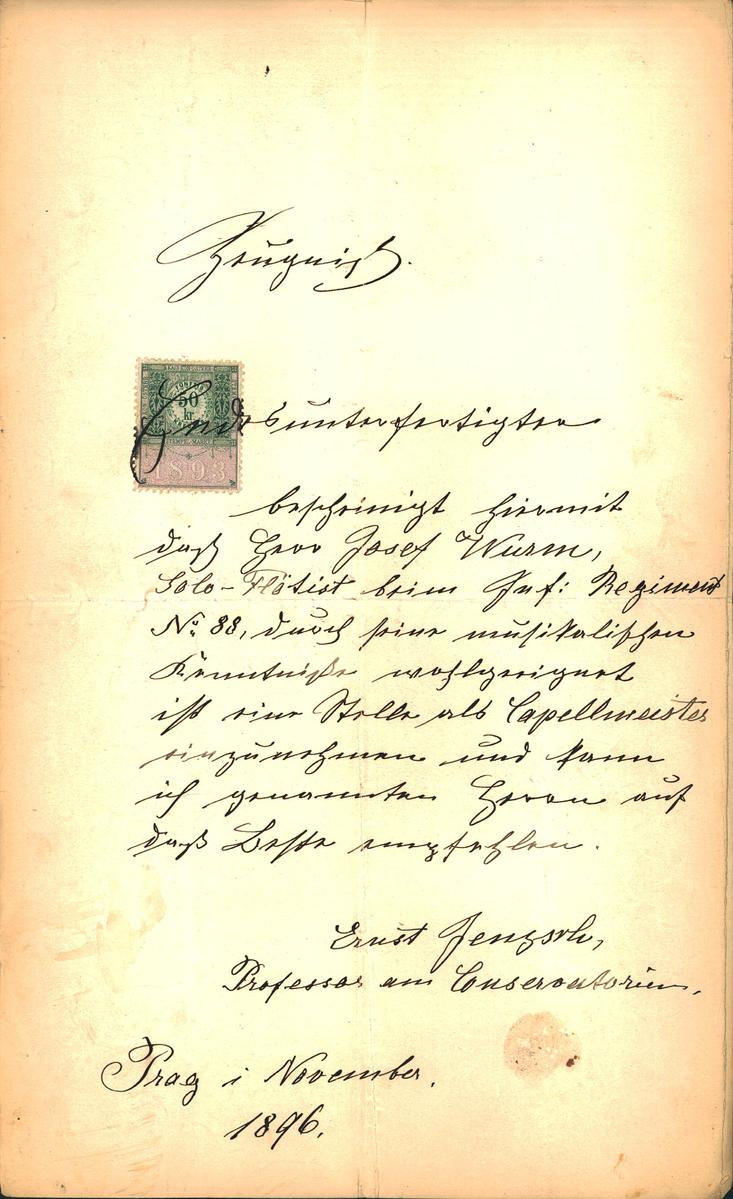 Zeugniß.
50
kr.
STEMPEL-MARKE
1893
Endesunterfertigter
bescheinigt hiermit
daß Herr Josef Wurm,
Solo-Flötist beim Inf: Regiment
No. 88, durch seine musikalischen
Kenntniße wohlgeeignet
ist eine Stelle als Capellmeister
einzunehmen und kann
ich genannten Herrn auf
daß Beste empfehlen.
Ernst
Professor am Conservatorium,
Prag i November.
1896.